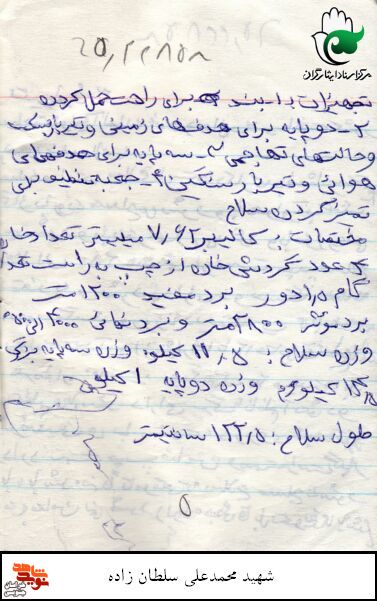 مرکز اسناد ایثارگران
تجهیزات ۱- بند برای راحت حمل کردن
۲- دوپایه برای هدفهای زمینی و تیربار سبک
و حالتهای تهاجمی ۳- سه پایه برای هدفهای
هوائی و تیربار سنگین ۴- جعبه تنظیف برای
تمیز کردن سلاح
مختصات: کالیبر ۷/۶۲ میلیمتر تعداد خان
۴ عدد گردش خان از چپ به راست
گام ۱/۵ دور برد مفید ۱۲۰۰ متر
برد موثر ۲۸۰۰ متر و برد نهائی ۴۰۰۰ الی ۵۰۰۰
وزن سلاح: ۱۱/۵ کیلو، وزن سه پایه
کیلوگرم وزن دوپایه ۱ کیلو
طول سلاح: ۱۲۲/۵ سانتیمتر
۵
شهید محمدعلی سلطان زاده